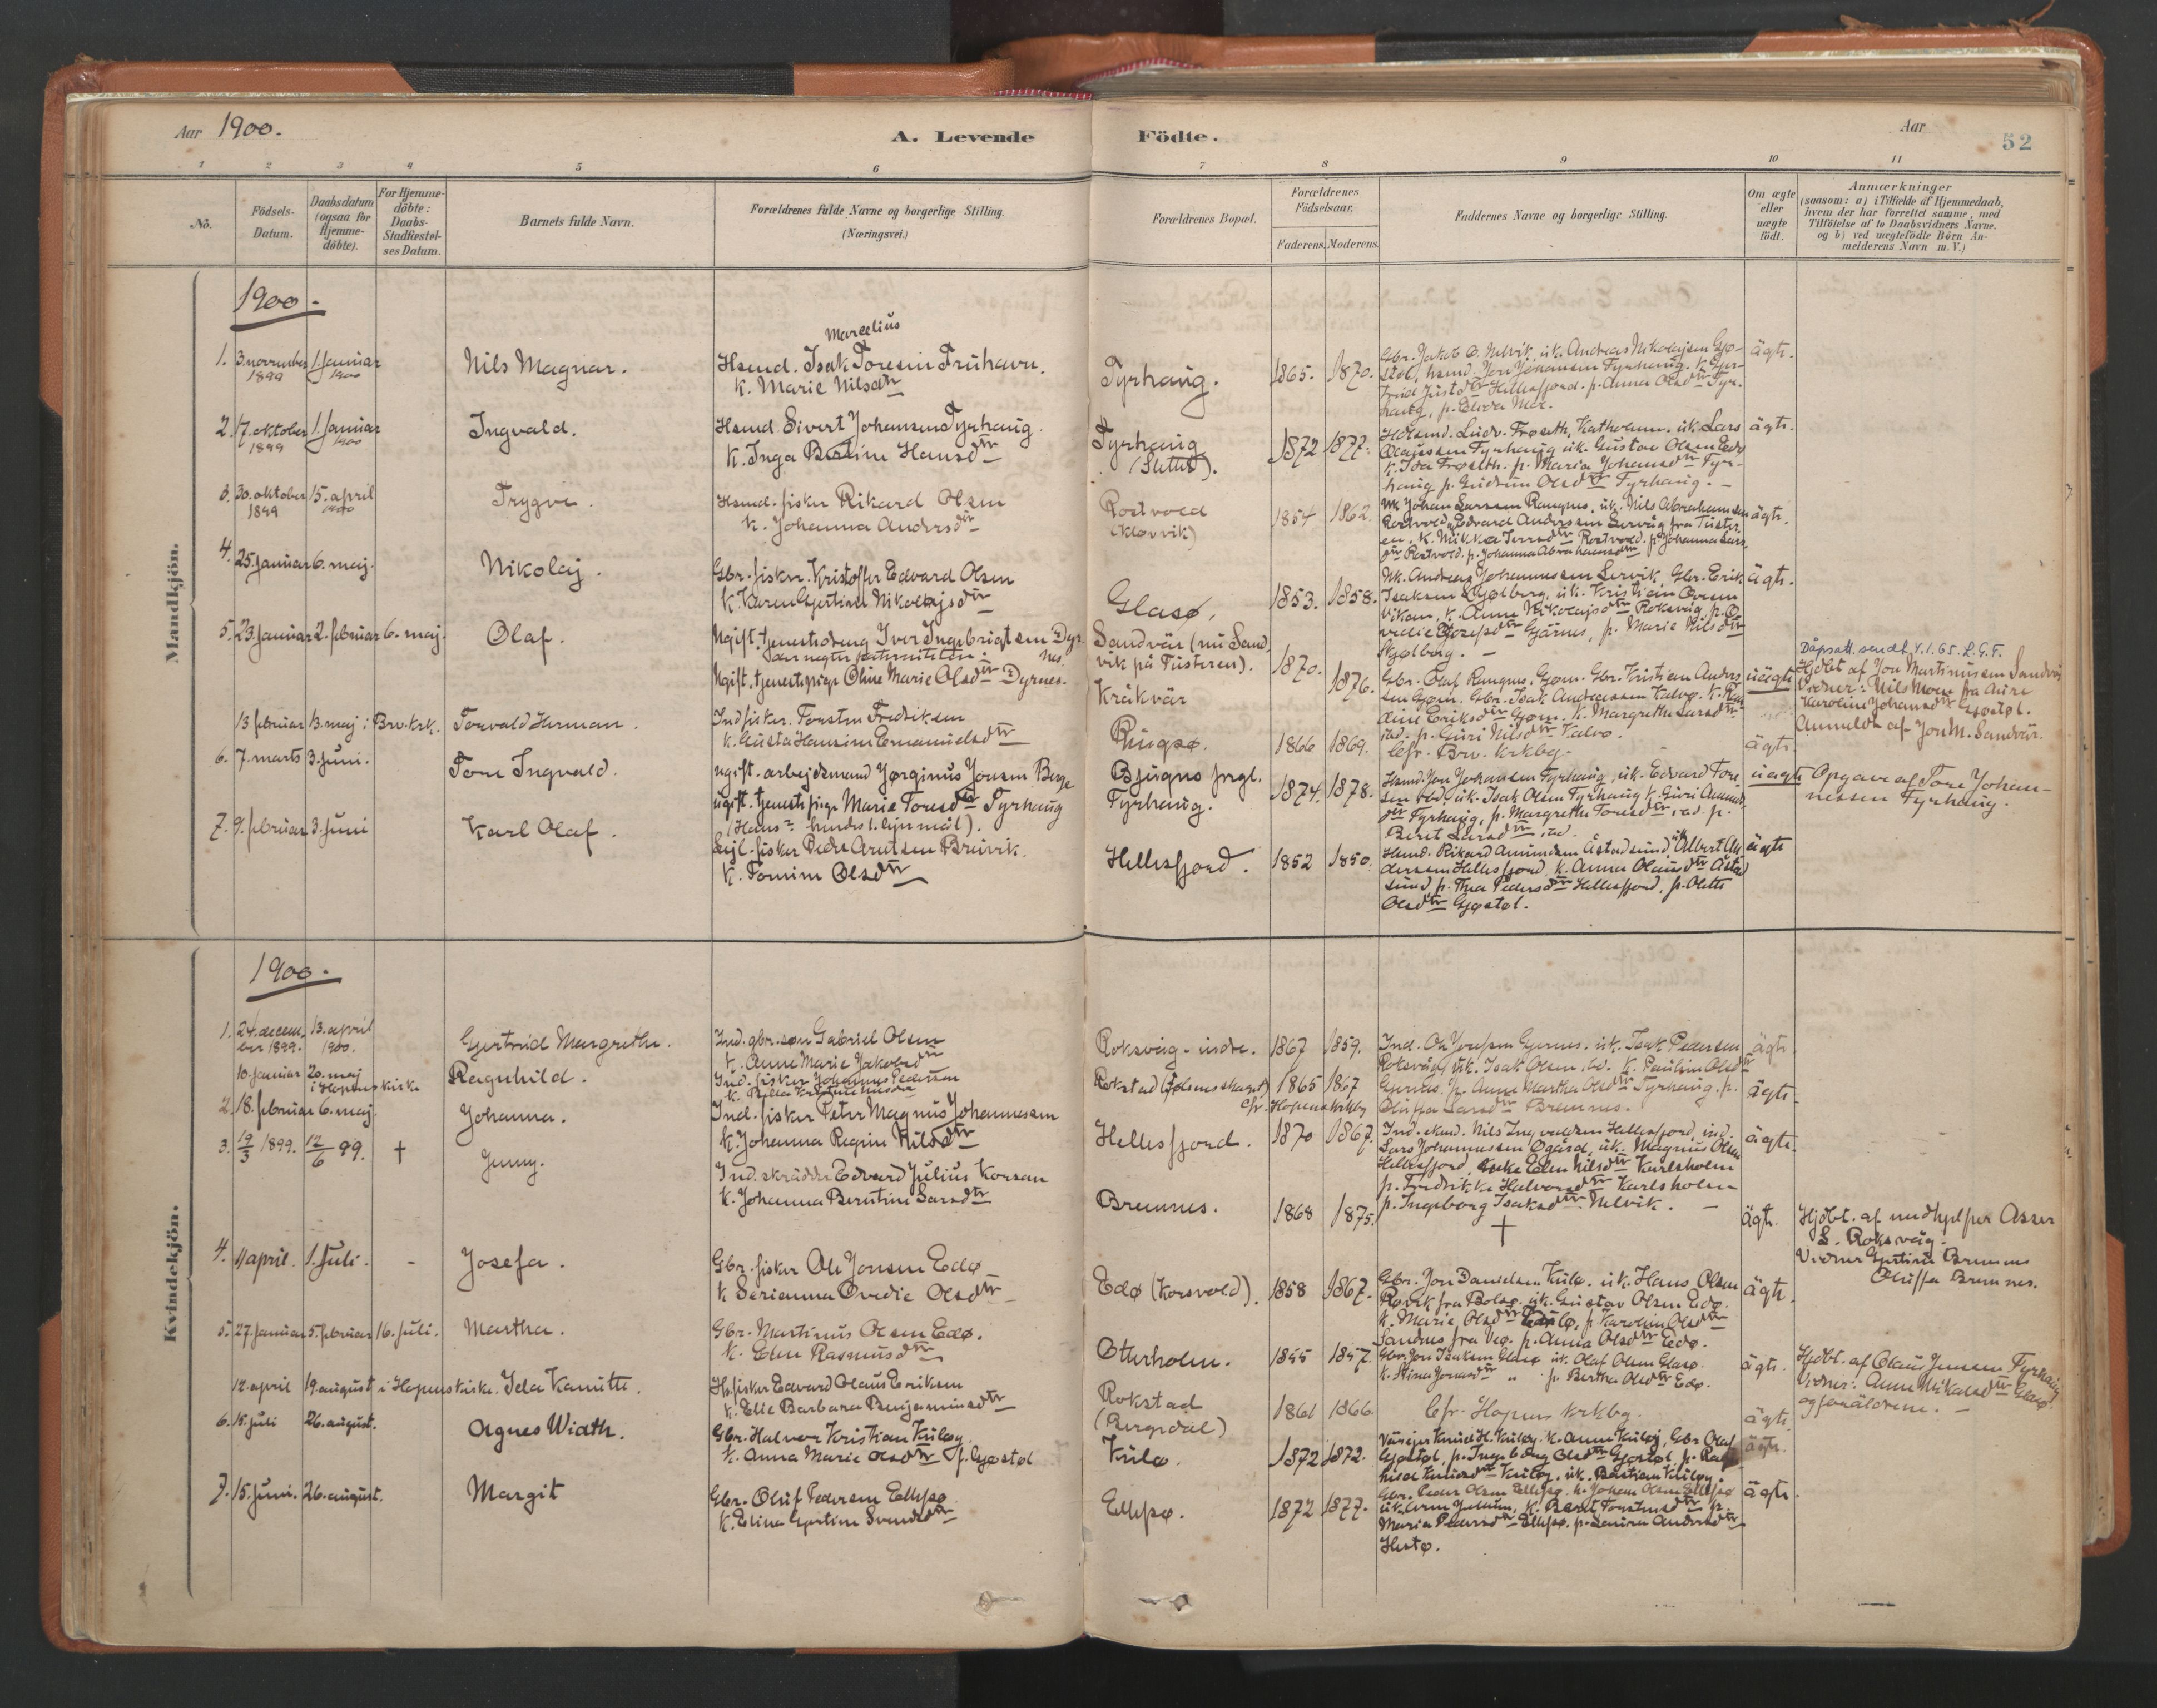 Aar 1900.
A. Levende
Födte.
Aar
52
1 2 3 4 5 6 7 8 9 10 11
No.
Födsels-Datum.
Daabsdatum (ogsaa för Hjemme-döbte).
For Hjemme-döbte: Daabs-Stadfæstel-ses Datum.
Barnets fulde Navn.
Forældrenes fulde Navne og borgerlige Stilling.
(Næringsvei.)
Forældrenes Bopæl.
Forældrenes Födselsaar.
Faderens. Moderens.
Faddernes Navne og borgerlige Stilling.
Om ægte eller uægte födt.
Anmærkninger
(saasom: a) i Tilfælde af Hjemmedaab, hvem der har forrettet samme, med Tilföielse af to Daabsvidners Navne. og b) ved uægtefödte Börn Anmelderens Navn m. V.)
Mandkjön.
1900.
1. 3. november 1899 1. januar 1900
Nils Magnar.
Marcelius
Hsmd. Isak Toresen Fruhavn.
k. Marie Nilsdtr
Tyrhaug. 1865. 1870.
Gbr. Jakob O. Nelvik, uk. Andreas Nikolajsen Gjø-
støl, hsmd. Jon Johansen Tyrhaug. k. Gjer-
trud Justdtr Hellesfjord. p. Anna Olsdtr Tyr-
haug, p.
ägte.
2. 17. oktober 1899 1. januar 1900
Ingvald.
Hsmd. Sivert Johansen Tyrhaug.
k. Inga Berline Hansdtr
Tyrhaug
1872 1877.
Ludv. Frøseth, uk. Lars
Olaussen Tyrhaug uk. Gustav Olsen Edø
k. Ida Frøseth. p. Maria Johansdtr Tyr-
haug p. Gudrun Olsdtr Tyrhaug. -
ägte.
3. 30. oktober 1899 15. april 1900
Trygve.
Hsmd. fisker Rikard Olsen
k. Johanna Andersdtr
Rostvold
(Kløvvik)
1854 1862.
uk. Johan Larssen Ramsøe, uk. Nils Abrahamsen
Rostvold, Edvard Anderssen Lervåg fra Tuster-
en. k. Rostvold. p. Johanna Lars-
dtr Rostvold. p. Johanna Abrahamsdtr
ägte.
4. 25. januar 6. maj.
Nikolaj.
Gbr. fisker. Kristoffer Edvard Olsen
k. Karen Gjertine Nikolajsdtr
Glasø.
1853. 1858.
Uk. Andreas Johannessen Lervik, Gbr. Erik
Isaksen Skjølberg, uk. Kristian
Vikan, k. Anne Nikolajsdtr Roksvåg, p. O-
vedie Josefsdtr Gjärnes, p. Marie Nilsdtr
Skjølberg. -
ägte.
5. 23. januar 2. februar 6. maj.
Olaf.
Ugift. tjenestedreng Iver Ingebrigtsen Dyr-
nes.
der negter paterniteten.
Ugift. tjenestepige Oline Marie Olsdtr Dyrnes.
Sandvär (nu Sand-
vik på Tusteren).
Kråkvär
1870. 1876.
Gbr. Olaf Rangnes, Gjøm. Gbr. Kristian Anders-
sen Gjøm. Gbr. Isak Andreassen Kalvø. k.
dine Eriksdtr Gjøm. k. Margrethe Larsdtr
ibd. p. Guri Nilsdtr Kalvø.
uägte
Dåpsatt. sendt 4.1.65. L.G.F.
Hjdbt af Jon Martinussen Sandvär
Vidner: Nils Moen fra Aure
Karoline Johansdtr Gjøstøl.
Anmeldt af Jon M. Sandvär.
13 februar 13. maj i Brv. krk.
Torvald Herman.
Ind. fisker. Torsten Fredriksen
k. Gusta Hansine Emanuelsdtr
Ringsø.
1866 1869.
Cfr. Brv. krkbg.
ägte
6. 7. marts 3. juni.
Tore Ingvald.
ugift. arbejdsmand Jørginus Jonsen Berge
ugift. tjenestepige Marie Toresdtr Tyrhaug
(Hans 2. hendes 1. lejermål).
Bjugns prgl.
Tyrhaug.
1874. 1878.
Hsmd. Jon Johansen Tyrhaug, uk. Edvard Tore-
sen ibd, uk. Isak Olsen Tyrhaug k. Guri Amunds-
dtr Tyrhaug, p. Margrethe Toresdtr, ibd. p.
Beret Larsdtr, ibd.
uägte
Opgave af Tore Johan-
nessen Tyrhaug.
7. 9. februar 3. juni
Karl Olaf.
Sejl. fisker Peder Arntsen Breivik.
k. Tomine Olsdtr
Hellesfjord.
1852 1850.
Hsmd. Rikard Amundsen Åstadsund uk. Albert An-
derssen Hellesfjord k. Anna Olausdtr Åstad-
sund p. Thea Pedersdtr Hellesfjord, p. Olette
Olsdtr Gjøstøl.
ägte
Kvindekjön.
1900.
1. 24. decem-
ber 1899. 13. april 1900.
Gjertrud Margrethe.
Ind. gbr. søn Gabriel Olsen
k. Anne Marie Jakobsdtr
Roksvåg - indre.
1867 1859.
Ind. Ole Josefsen Gjernes. uk. Isak Pedersen
Roksvåg, uk. Isak Olsen, ibd. k. Pauline Olsdtr
Gjernes. p. Anne Martha Olsdtr Tyrhaug. p.
Oluffa Larsdtr Bremnes.
ägte.
10. januar 20. maj
i Hopens kirke
Ragnhild.
Ind. fisker Johannes Pedersen
Rokstad
1865 1867
cfr. Hopens krkbg
ägte.
2. 18. februar 6. maj.
Johanna.
Ind. fisker Peter Magnus Johannessen
k. Johanna Regine Nilsdtr
Hellesfjord.
1870 1867.
Ind. skmd. Nils Ingvaldsen Hellesfjord, ind.
Lars Johannessen Øgård, uk. Magnus Olsen
Hellesfjord, enke Eden Nilsdtr Karlsholm
p. Fredrikke Halvorsdtr Karlsholm
p. Ingeborg Isaksdtr Nelvik. -
ägte.
3. 19/3 1899. 12/6 99. †
Jenny.
Ind. skrädder Edvard Julius Korsan
k. Johanna Berntine Larsdtr
Bremnes.
1868 1875.
†
ägte.
Hjdbt. af medhjelper Asser
L. Roksvåg.
Vidner Gjertine Bremnes
Oluffa Bremnes.
4. 11 april. 1. juli. -
Josefa.
Gbr. fisker Ole Jonsen Edø
k. Serianna Ovedie Olsdtr
Edø (Korsvold).
1858 1867.
Gbr. Jon Danielsen Kulø. uk. Hans Olsen
Røvik fra Bolsø. uk. Gustav Olsen Edø.
k. Marie Olsdtr Kulø, p. Karoline Olsdtr
Sandnes fra Veø. p. Anna Olsdtr Edø.
ägte.
5. 27. januar 5. februar 16. juli.
Martha.
Gbr. Martinus Olsen Edø.
k. Eden Rasmusdtr
Otterholm.
1855 1857.
Gbr. Jon Isaksen Glasø uk. Olaf Olsen Glasø.
k. Stina Jonasdtr " p. Bertha Olsdtr Edø.
ägte.
Hjdbt. af Olaus Jensen Tyrhaug
Vidner: Anne Mikalsdtr Glasø
og forældrene. -
12. april 19. august i Hopens kirke.
Ida Kanutte.
Hs. fisker Edvard Olaus Eriksen
k. Elie Barbara Benjaminsdtr
Rokstad
(Bergsdal)
1861 1866.
Cfr. Hopens krkbg.
ägte
6. 15. juli 26. august.
Agnes Wiath.
Gbr. Halvor Kristian Kuløy
k. Anna Marie Olsdtr f. Gjøstøl
Kulø.
1872 1872.
Knud H. Kuløy. k. Anne Kuløy, Gbr. Olaf
Gjøstøl, p. Ingeborg Olsdtr Gjøstøl, p. Ragn-
hild Knudsdtr Kuløy. uk. Bastian Kuløy.
ägte.
7. 15. juni. 26. august.
Margit
Gbr. Oluf Pedersen Ellefsø
k. Elina Gjertine Svendsdtr
Ellefsø.
1872 1877.
Gbr. Peder Olsen Ellefsø. k. Johan Olsen Ellefsø
k. Beret Torstensdtr p.
Maria Pedersdtr Ellefsø, p. Laura Andersdtr
Hestø.
ägte.